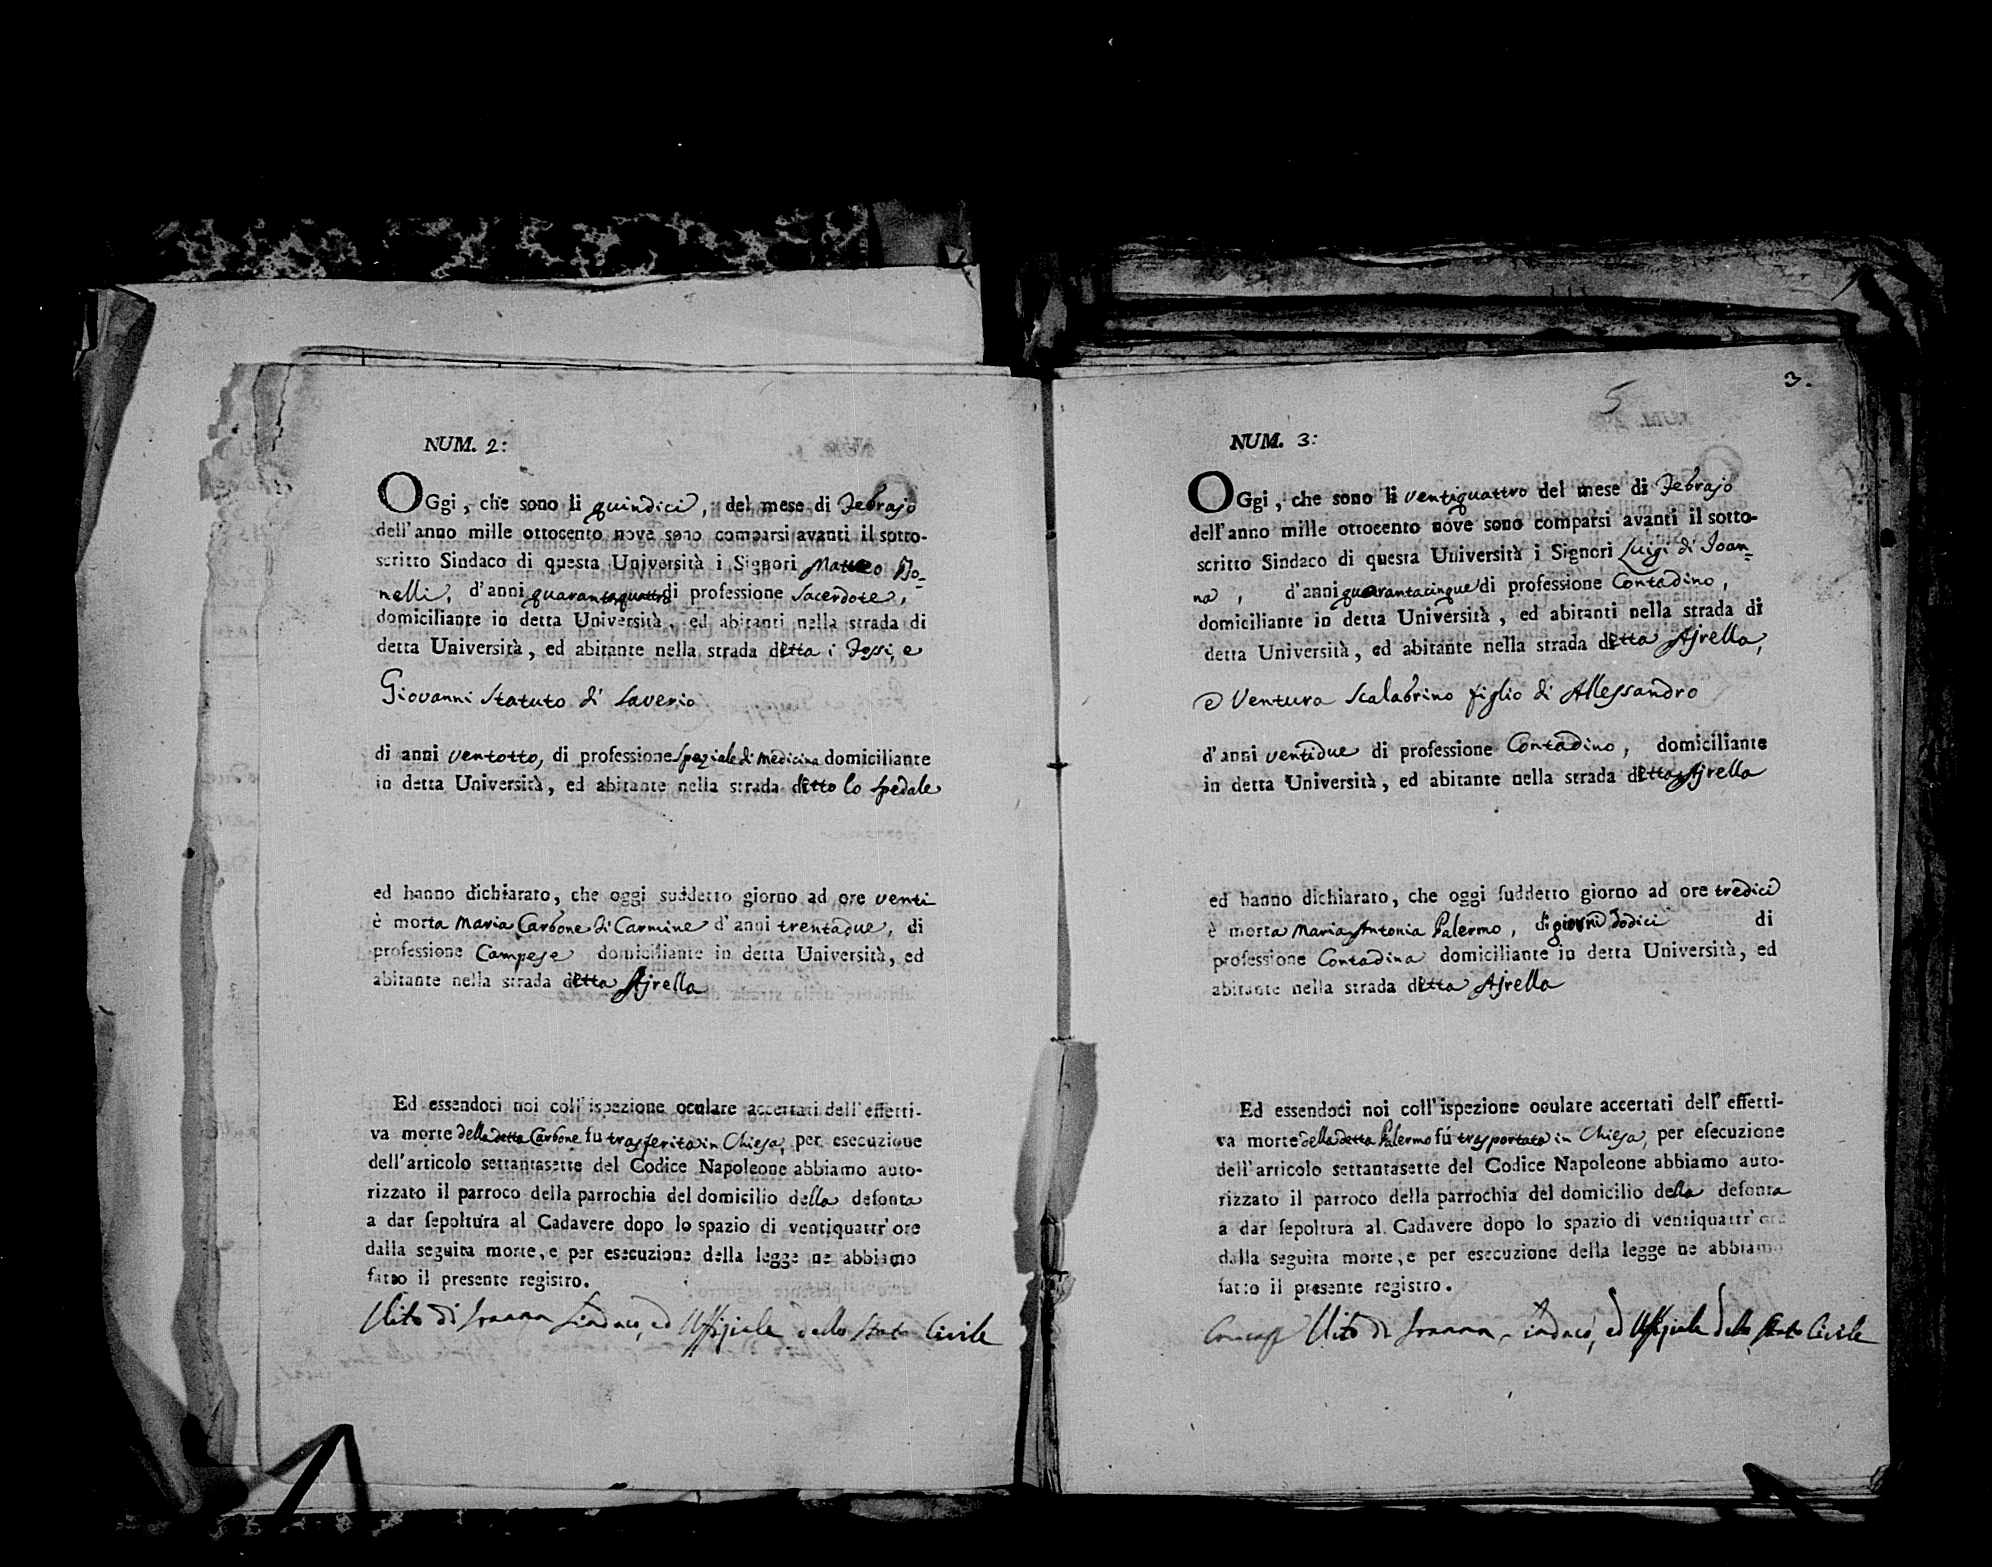 NUM. 2:
OGgi, che sono li quindici, del mese di Febrajo
dell'anno mille ottocento nove sono comparsi avanti il sotto-
scritto Sindaco di questa Università i Signori Matteo
nelli, d'anni quarantaquattro di professione Sacerdote,
domiciliante in detta Università, ed abitanti nella strada di
detta Università, ed abitante nella strada detta i Fossi, e
Giovanni Statuto di Saverio
di anni ventotto, di professione Speziale di Medicina domiciliante
in detta Università, ed abitante nella strada ditto lo Spedale
ed hanno dichiarato, che oggi suddetto giorno ad ore venti
è morta Maria Carbone di Carmine d'anni trentadue, di
professione Campese domiciliante in detta Università, ed
abitante nella strada detta Ajrella
Ed essendoci noi coll'ispezione oculare accertati dell'effetti-
va morte della detta Carbone fu trasferita in Chiesa, per esecuzione
dell'articolo settantasette del Codice Napoleone abbiamo auto-
rizzato il parroco della parrochia del domicilio della defonta
a dar sepoltura al Cadavere dopo lo spazio di ventiquattr'ore
dalla seguita morte, e per esecuzione della legge ne abbiamo
fatto il presente registro.
Vito di Ioanna Sindaco, ed Uffiziale dello Stato Civile
3.
5
NUM. 3:
OGgi, che sono li ventiquattro del mese di Febrajo
dell'anno mille ottocento nove sono comparsi avanti il sotto-
scritto Sindaco di questa Università i Signori Luigi di Ioan=
na, d'anni quarantacinque di professione Contadino,
domiciliante in detta Università, ed abitanti nella strada di
detta Università, ed abitante nella strada detta Ajrella,
e Ventura Scalabrino figlio di Allessandro
d'anni ventidue di professione Contadino, domiciliante
in detta Università, ed abitante nella strada detta Ajrella
ed hanno dichiarato, che oggi suddetto giorno ad ore tredici
è morta Maria Antonia Palermo, di giorni dodici di
professione Contadina domiciliante in detta Università, ed
abitante nella strada detta Ajrella
Ed essendoci noi coll'ispezione oculare accertati dell'effetti-
va morte della detta Palermo fú trasportata in Chiesa, per esecuzione
dell'articolo settantasette del Codice Napoleone abbiamo auto-
rizzato il parroco della parrochia del domicilio della defonta
a dar sepoltura al Cadavere dopo lo spazio di ventiquattr'ore
dalla seguita morte, e per esecuzione della legge ne abbiamo
fatto il presente registro.
Vito di Ioanna Sindaco, ed Uffiziale dello Stato Civile